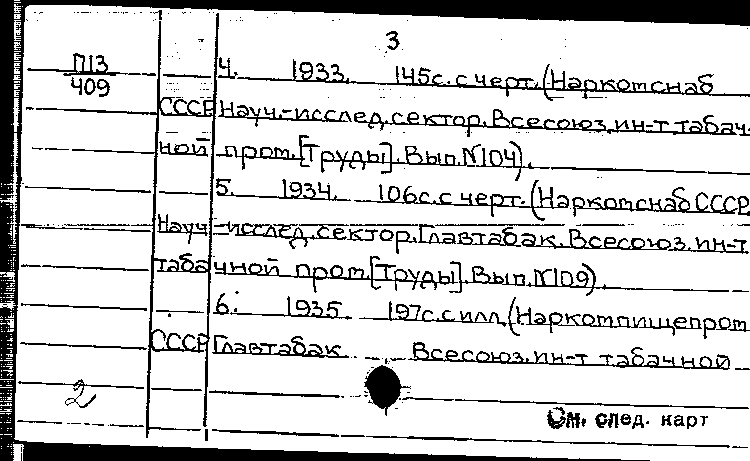 3
П13
409
4. 1933. 145с. с черт. (Наркотснаб
СССР Науч.-исслед. сектор. Всесоюз. ин-т табач-
ной пром. [Труды]. Вып. №104).
5. 1934. 106с. с черт. (Наркотснаб СССР
Науч.-исслед. сектор. Главтабак. Всесоюз. ин-т
табачной пром. [Труды]. Вып. №109).
6. 1935. 197с. с илл. (Наркотпищепром
СССР Главтабак Всесоюз. ин-т табачной
2
См. след. карт